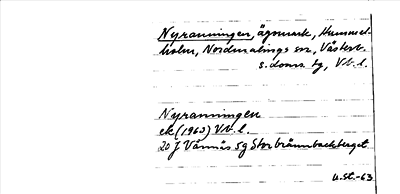 Nyranningen, ägomark, Hummel-
holm, Nordmalings sn, Västerb.
s. doms. tg, Vb. l.
Nyranningen
ek (1963) Vb. l.
20 J Vännäs 5g Storbrännbackberget
U.St.-63